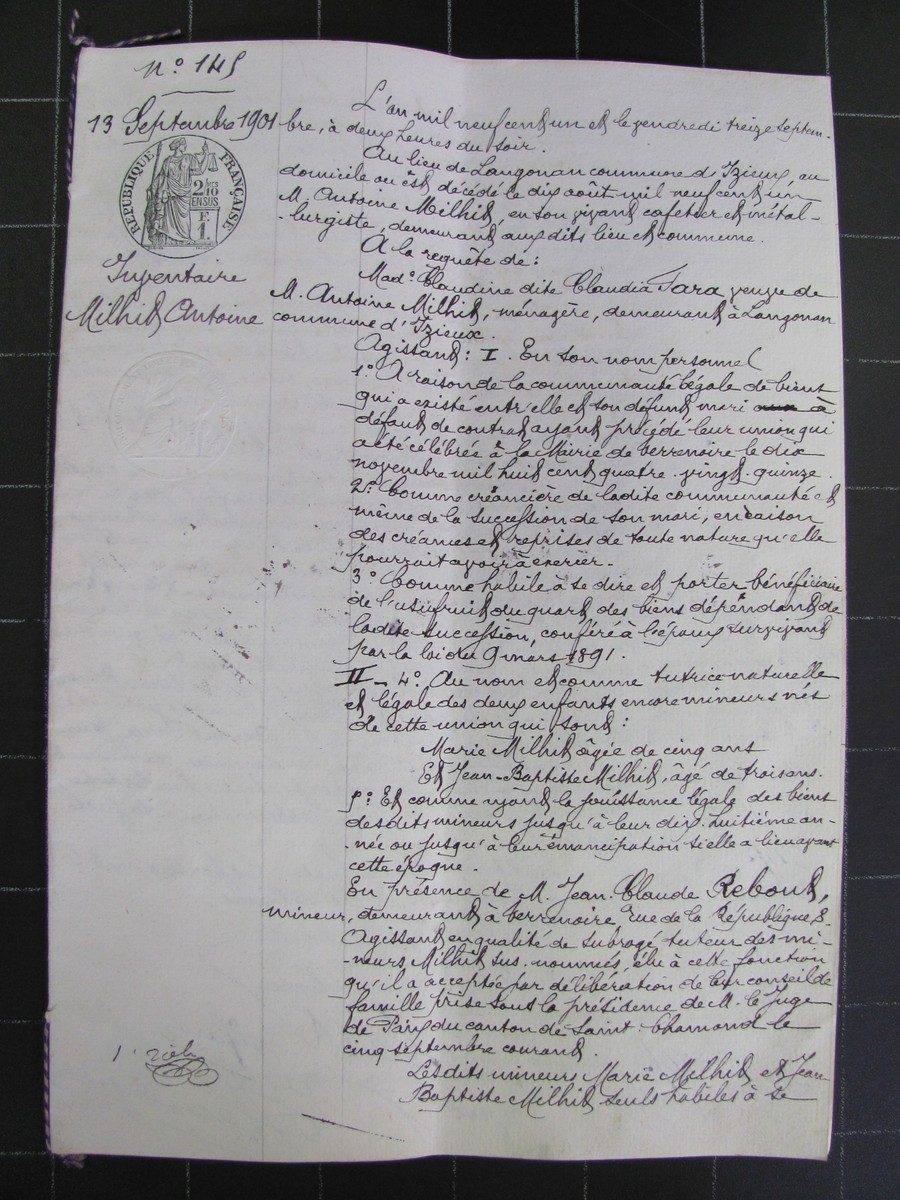 N.º 145
13 Septembre 1901
RÉPUBLIQUE FRANÇAISE
2/10ES
EN SUS
F.
1.
Inventaire
Milhit Antoine
L'an mil neuf cent un et le vendredi treize septem-
bre, à deux heures du soir.
Au lieu de Langonan commune d'Izieux, au
domicile où est décédé le dix août mil neuf cent un
M. Antoine Milhit, en son vivant cafetier et métal-
-lurgiste, demeurant aux dits lieu et commune.
A la requête de:
Mad.e Claudine dite Claudia Fara veuve de
M. Antoine Milhit, ménagère, demeurant à Langonan
commune d'Izieux.
Agissant: I. En son nom personnel
1.º A raison de la communauté légale de biens
qui a existé entr'elle et son défunt mari à
défaut de contrat ayant précédé leur union qui
a été célébrée à la Mairie de Verrenoire le dix
novembre mil huit cent quatre-vingt-quinze.
2.º Comme créancière de ladite communauté et
même de la succession de son mari, en raison
des créances et reprises de toute nature qu'elle
pourrait avoir à exercer.
3.º Comme habile à se dire et porter bénéficiaire
de l'usufruit du quart des biens dépendant de
ladite succession, conféré à l'époux survivant
par la loi du 9 mars 1891.
II - 4.º Au nom et comme tutrice naturelle
et légale des deux enfants encore mineurs nés
de cette union qui sont:
Marie Milhit âgée de cinq ans
Et Jean-Baptiste Milhit, âgé de trois ans.
5.º Et comme ayant la jouissance légale des biens
desdits mineurs jusqu'à leur dix-huitième an-
-née ou jusqu'à leur émancipation si elle a lieu avant
cette époque.
En présence de M. Jean-Claude Rebout,
mineur, demeurant à Verrenoire rue de la République,
Agissant en qualité de subrogé tuteur des mi-
-neurs Milhit sus-nommés, élu à cette fonction
qu'il a acceptée par délibération de leur conseil de
famille prise sous la présidence de M. le Juge
de Paix du canton de Saint-Chamond le
cinq septembre courant.
Lesdits mineurs Marie Milhit et Jean
Baptiste Milhit seuls habiles à se
1.er rôle